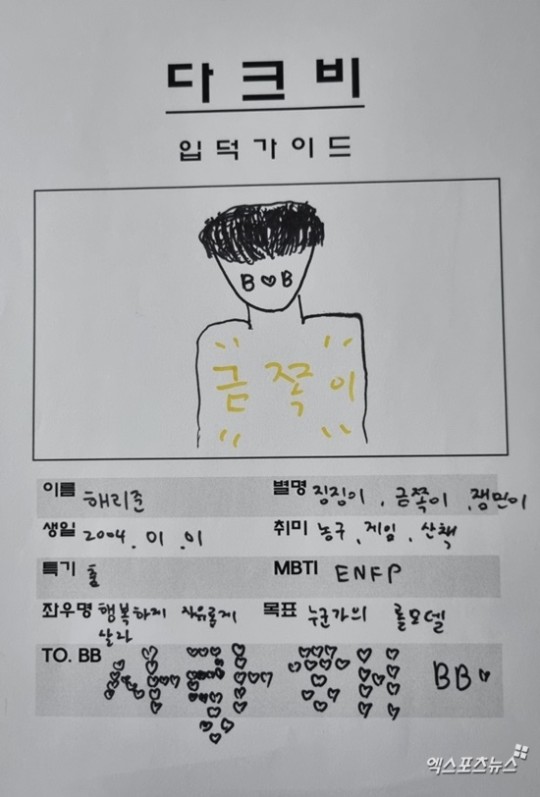 다크비
입덕가이드
B♡B
금쪽이
이름 해리준 별명 징징이, 금쪽이, 잼민이
생일 2004. 01. 01 취미 농구, 게임, 산책
특기 춤 MBTI ENFP
좌우명 행복하게 자유롭게 목표 누군가의 롤모델
살자
TO. BB 사랑해 BB♡
엑스포츠뉴스